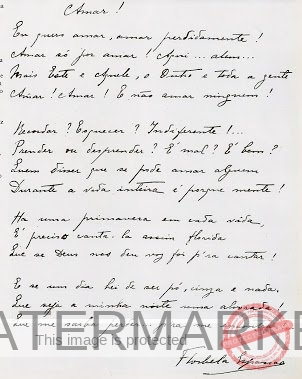 Amar!
Eu quero amar, amar perdidamente!
Amar só por amar! Aqui... alem...
Mais Este e Aquele, o Outro e toda a gente
Amar! Amar! E não amar ninguem!
Recordar? Esquecer? Indiferente!...
Prender ou desprender? É mal? É bem?
Quem disser que se pode amar alguem
Durante a vida inteira é porque mente!
Ha uma primavera em cada vida,
É preciso canta-la assim florida
Que se Deus nos deu voz foi p'ra cantar!
E se um dia hei de ser pó, cinza e nada,
Que seja a minha noite uma alvorada!
Que me saiba perder... p'ra me
Florbela Espanca
ATERMARK
This image is protected